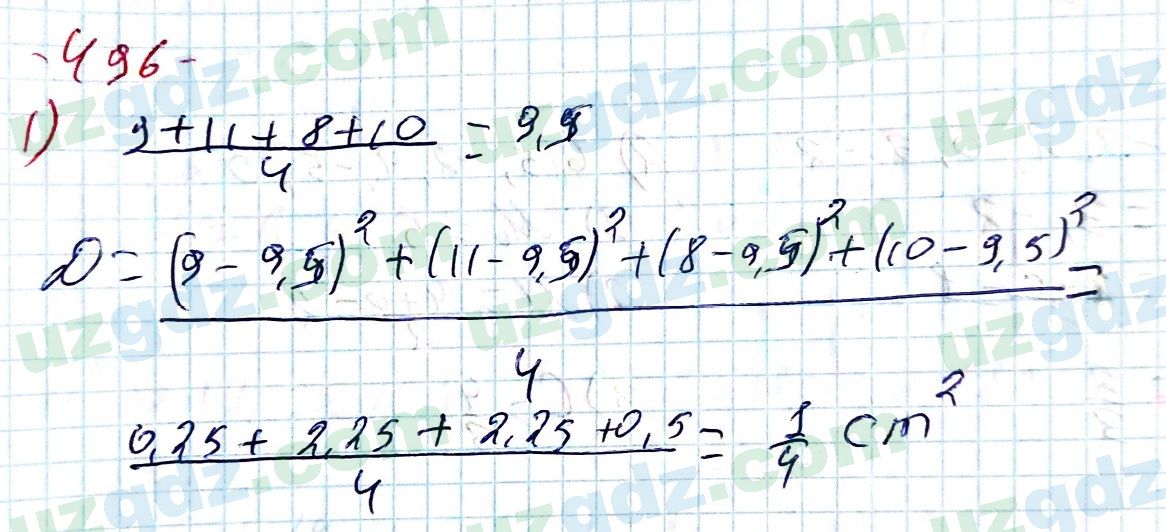 -496-
1) (9+11+8+10)/4 = 9,5
D = ((9-9,5)²+(11-9,5)²+(8-9,5)²+(10-9,5)²)/4 =
(0,25+2,25+2,25+0,5)/4 = 1/4 cm²
uzgdz.com